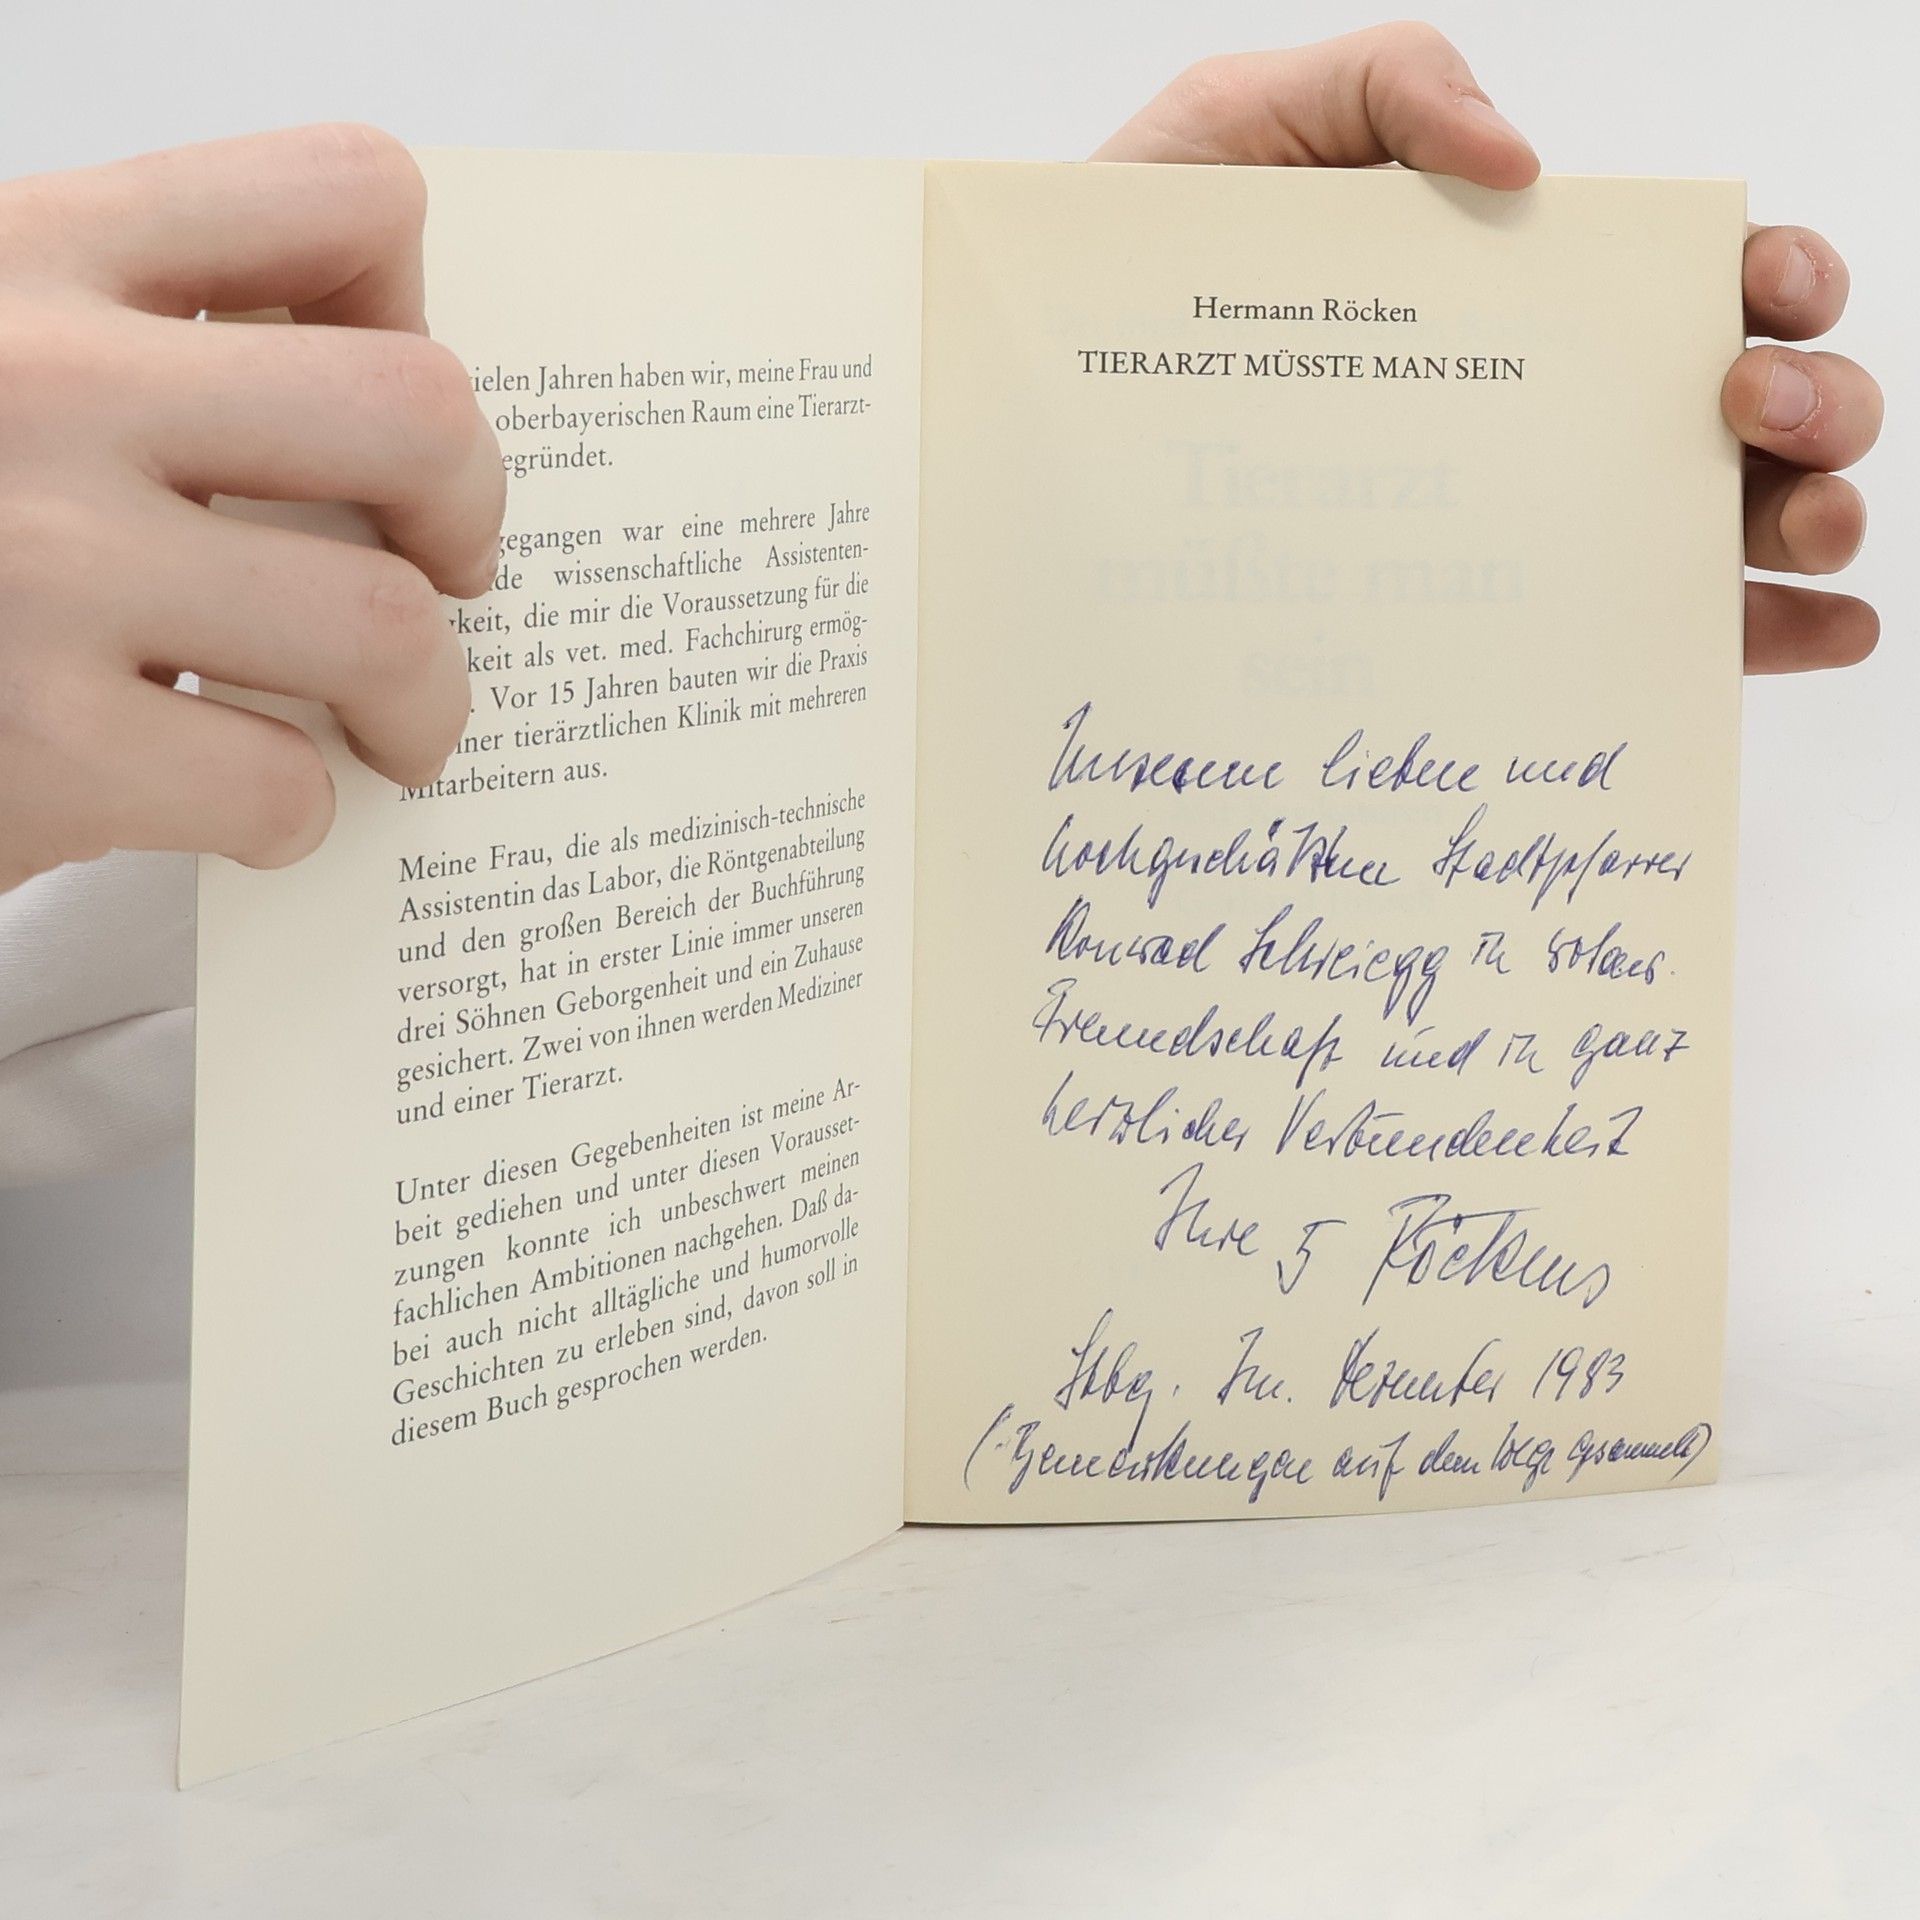 ielen Jahren haben wir, meine Frau und
oberbayerischen Raum eine Tierarzt-
egründet.
gegangen war eine mehrere Jahre
de wissenschaftliche Assistenten-
keit, die mir die Voraussetzung für die
keit als vet. med. Fachchirurg ermög-
. Vor 15 Jahren bauten wir die Praxis
iner tierärztlichen Klinik mit mehreren
Mitarbeitern aus.
Meine Frau, die als medizinisch-technische
Assistentin das Labor, die Röntgenabteilung
und den großen Bereich der Buchführung
versorgt, hat in erster Linie immer unseren
drei Söhnen Geborgenheit und ein Zuhause
gesichert. Zwei von ihnen werden Mediziner
und einer Tierarzt.
Unter diesen Gegebenheiten ist meine Ar-
beit gediehen und unter diesen Vorausset-
zungen konnte ich unbeschwert meinen
fachlichen Ambitionen nachgehen. Daß da-
bei auch nicht alltägliche und humorvolle
Geschichten zu erleben sind, davon soll in
diesem Buch gesprochen werden.
Hermann Röcken
TIERARZT MÜSSTE MAN SEIN
Tierarzt
müßte man
sein
Unserem lieben und
hochgeschätzten Stadtpfarrer
Konrad Schreiegg in
Freundschaft und in ganz
herzlicher Verbundenheit
Ihre 5 Röckens
Stbg. Im Dezember 1983
(Bemerkungen auf dem Wege gesammelt)